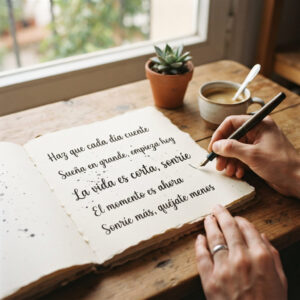 Haz que cada día cuente
Sueña en grande, empieza hoy
La vida es corta, sonríe
El momento es ahora
Sonríe más, quéjate menos